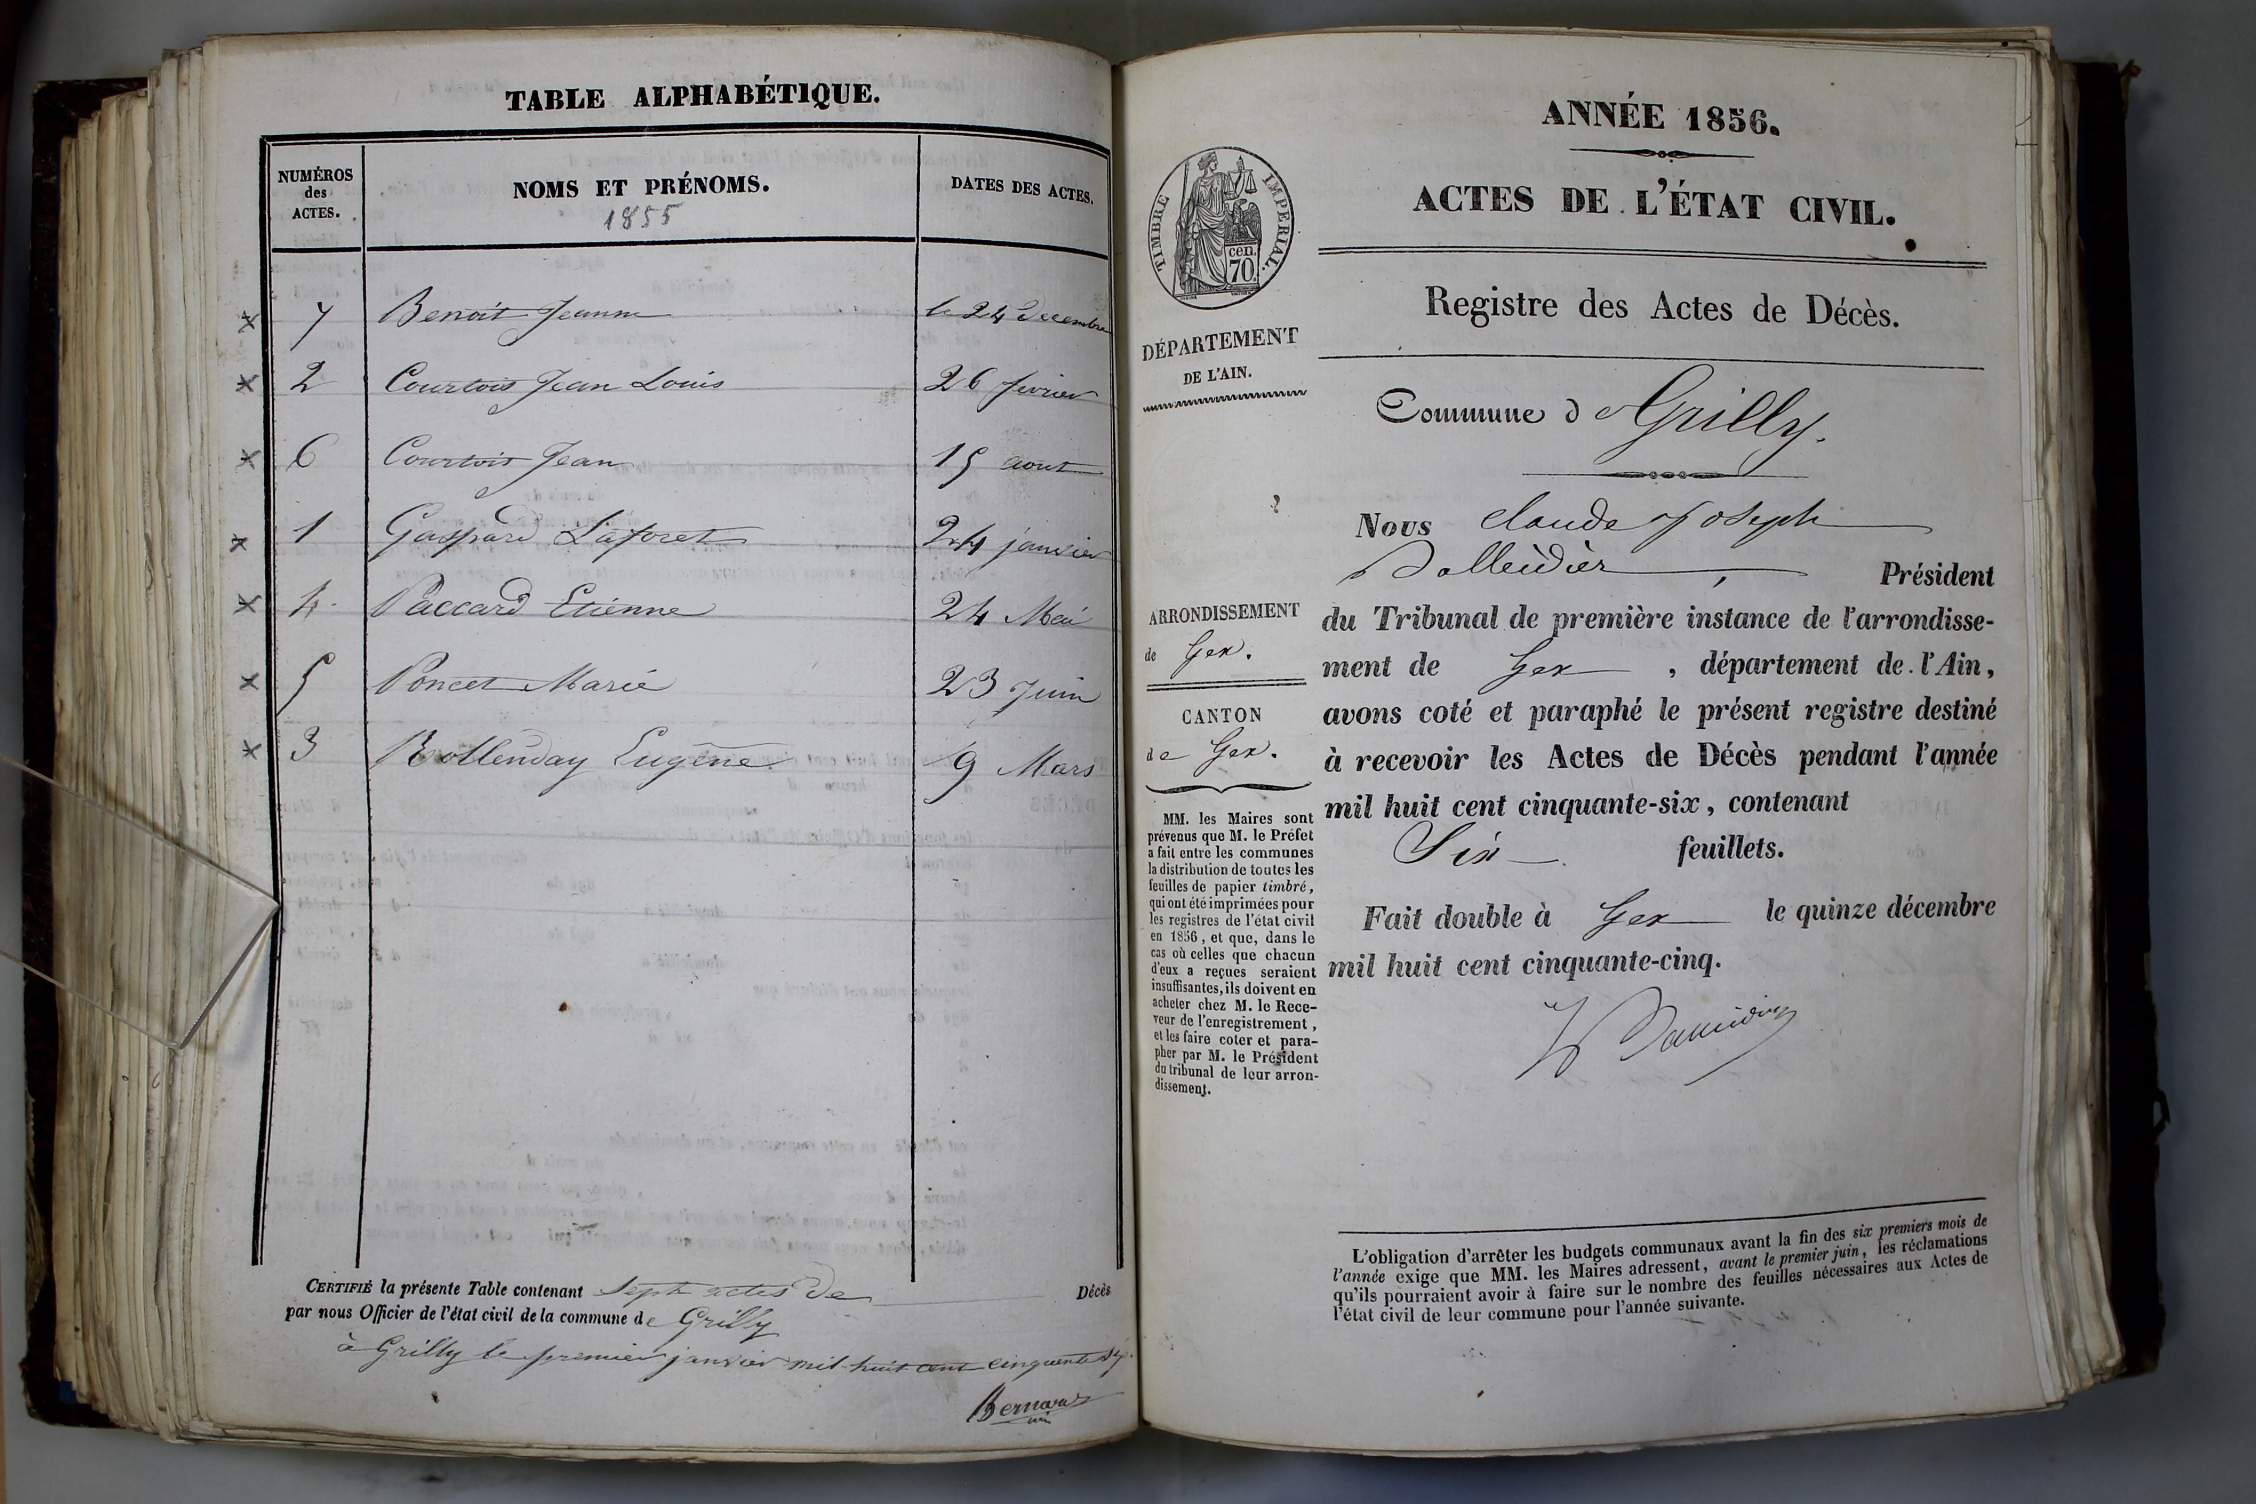 TABLE ALPHABÉTIQUE.
NUMÉROS
des
ACTES.
NOMS ET PRÉNOMS.
1855
DATES DES ACTES.
x 7 Benoit Jeanne le 24 decembre
x 2 Courtois Jean Louis 26 fevrier
x 6 Courtois Jean 15 aout
x 1 Gaspard Laforet 24 janvier
x 4. Paccard Etiénne 24 Mai
x 5 Poncet Marie 23 Juin
x 3 Rollenday Eugène 9 Mars
CERTIFIÉ la présente Table contenant Sept actes de Décès
par nous Officier de l'état civil de la commune de Grilly
à Grilly le premier janvier mil huit cent cinquante six.
Bernard
ANNÉE 1856.
ACTES DE L'ÉTAT CIVIL.
TIMBRE IMPERIAL.
cen.
70.
Registre des Actes de Décès.
DÉPARTEMENT
DE L'AIN.
Commune d Grilly.
Nous Claude Joseph
Président
du Tribunal de première instance de l'arrondisse-
ment de Gex , département de l'Ain,
avons coté et paraphé le présent registre destiné
à recevoir les Actes de Décès pendant l'année
mil huit cent cinquante-six, contenant
Six feuillets.
Fait double à Gex le quinze décembre
mil huit cent cinquante-cinq.
ARRONDISSEMENT
de Gex.
CANTON
de Gex.
MM. les Maires sont
prévenus que M. le Préfet
a fait entre les communes
la distribution de toutes les
feuilles de papier timbré,
qui ont été imprimées pour
les registres de l'état civil
en 1856, et que, dans le
cas où celles que chacun
d'eux a reçues seraient
insuffisantes, ils doivent en
acheter chez M. le Rece-
veur de l'enregistrement,
et les faire coter et para-
pher par M. le Président
du tribunal de leur arron-
dissement.
L'obligation d'arrêter les budgets communaux avant la fin des six premiers mois de
l'année exige que MM. les Maires adressent, avant le premier juin, les réclamations
qu'ils pourraient avoir à faire sur le nombre des feuilles nécessaires aux Actes de
l'état civil de leur commune pour l'année suivante.